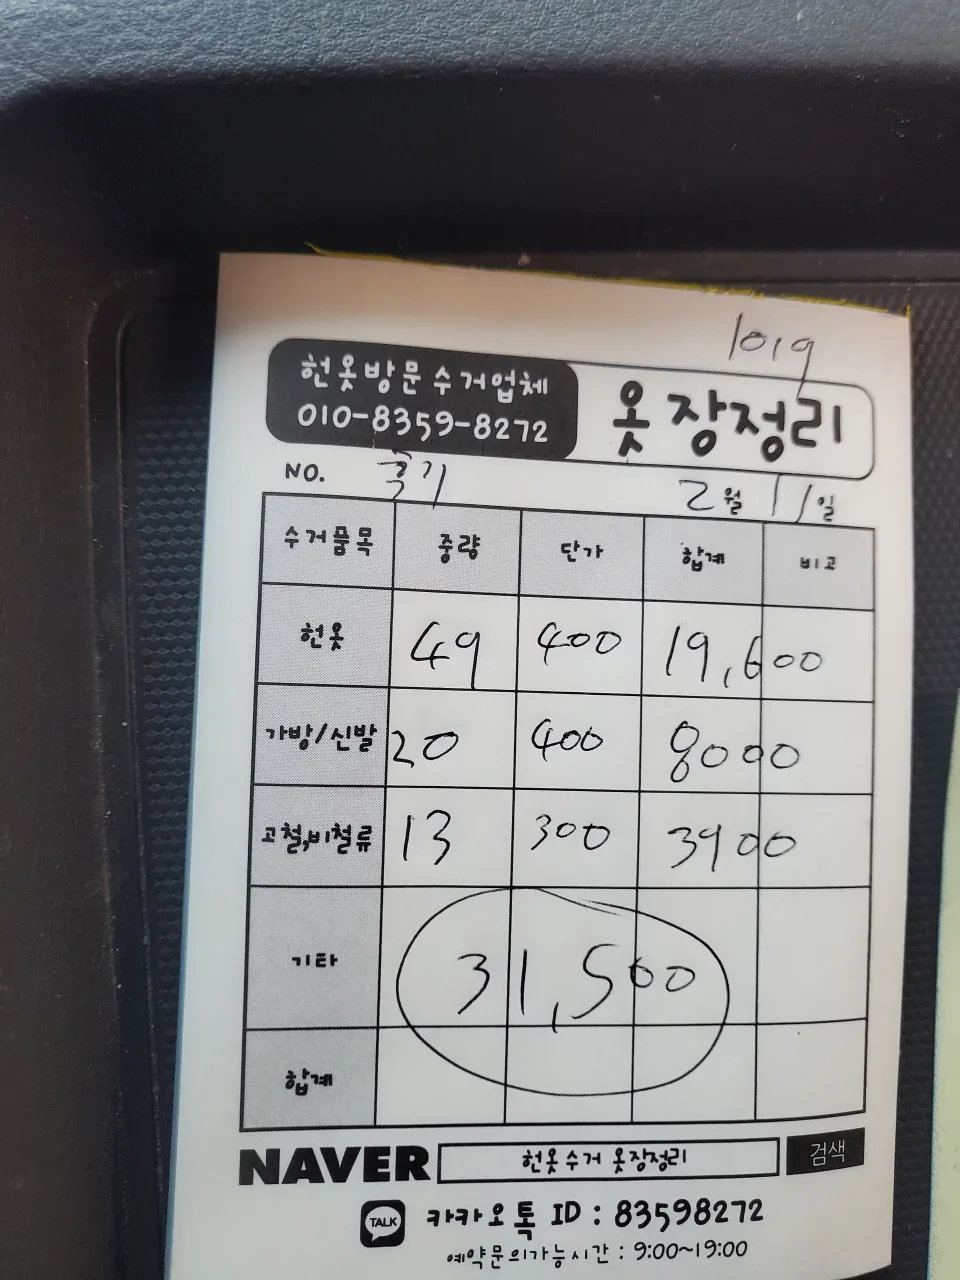 1019
헌옷방문수거업체
010-8359-8272
옷장정리
NO.
2월 11일
수거품목 중량 단가 합계 비고
헌옷 49 400 19,600
가방/신발 20 400 8000
고철,비철류 13 300 3900
기타 31,500
합계
NAVER 헌옷수거 옷장정리 검색
TALK 카카오톡 ID : 83598272
예약문의가능시간 : 9:00~19:00